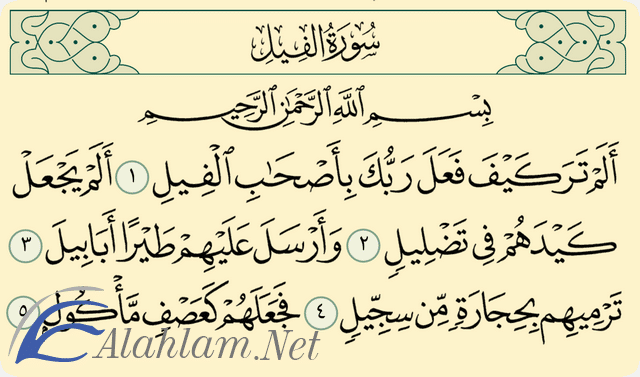 سُورَةُ الْفِيلِ
بِسْمِ اللَّهِ الرَّحْمَٰنِ الرَّحِيمِ
أَلَمْ تَرَ كَيْفَ فَعَلَ رَبُّكَ بِأَصْحَابِ الْفِيلِ ١ أَلَمْ يَجْعَلْ
كَيْدَهُمْ فِي تَضْلِيلٍ ٢ وَأَرْسَلَ عَلَيْهِمْ طَيْرًا أَبَابِيلَ ٣
تَرْمِيهِم بِحِجَارَةٍ مِّن سِجِّيلٍ ٤ فَجَعَلَهُمْ كَعَصْفٍ مَّأْكُولٍ ٥
Alahlam.Net